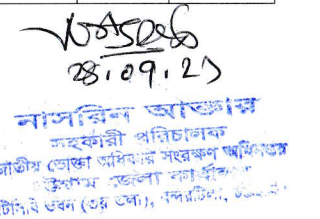 ২৪.০৭.২১
নাসরিন আক্তার
সহকারী পরিচালক
জাতীয় ভোক্তা অধিকার সংরক্ষণ অধিদপ্তর
জেলা কার্যালয়
টিসিবি ভবন (৩য় তলা), বন্দরটিলা,